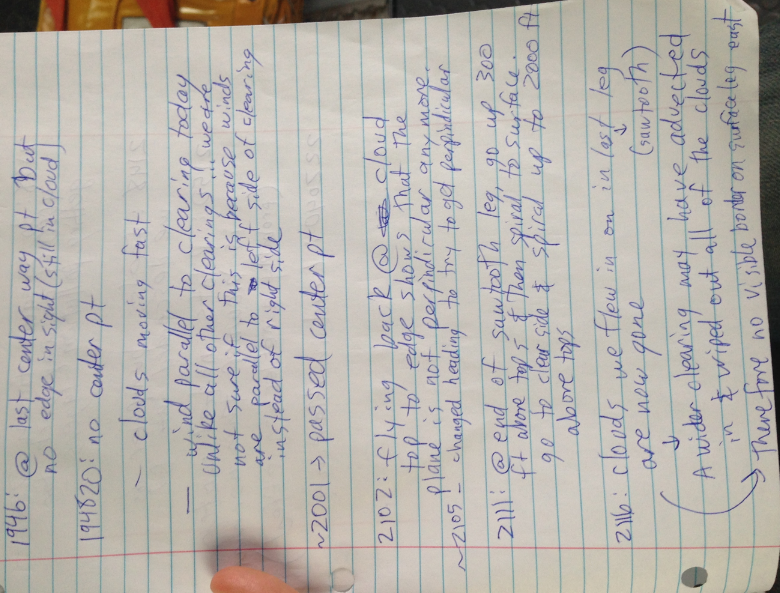 1946: @ last center way pt but
no edge in sight (still in cloud)
194820: no center pt
~ clouds moving fast
— wind parallel to clearing today
Unlike all other clearings... we are
not sure if this is because winds
are parallel to left side of clearing
instead of right side
~2001 → passed center pt
2102: flying back @ cloud
top to edge shows that the
plane is not perpendicular any more.
~2105 - changed heading to try to get perpindicular
2111: @ end of sawtooth leg, go up 300
ft above tops & then spiral to surface.
go to clear side & spiral up to 2000 ft
above tops
2116: clouds we flew in on in last leg
(sawtooth)
are now gone
A wider clearing may have advected
in & wiped out all of the clouds
→ Therefore no visible border on surface leg east